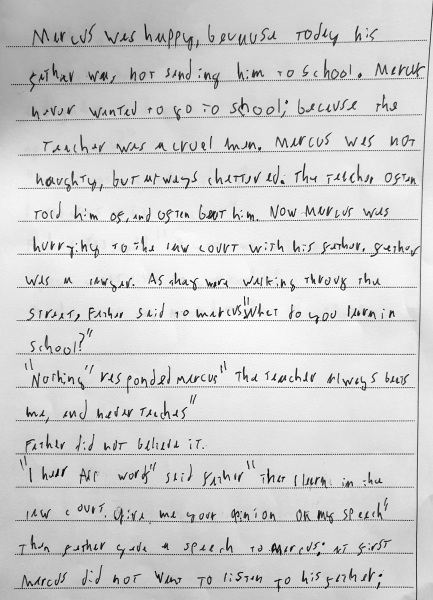 Marcus was happy, because today his
father was not sending him to school. Marcus
never wanted to go to school; because the
teacher was a cruel man. Marcus was not
naughty, but always chattered. The teacher often
told him of, and often beat him. Now Marcus was
hurrying to the law court with his father. father
was a lawyer. As they were walking throug the
street, Father said to marcus "What do you learn in
school?"
"Nothing" responded marcus "The teacher always beats
me, and never teaches"
Father did not believe it.
"I hear words" said father "That I learn in the
law court. Give me your opinion on my speech"
Then father gave a speech to Marcus; at first
Marcus did not want to listen to his father;